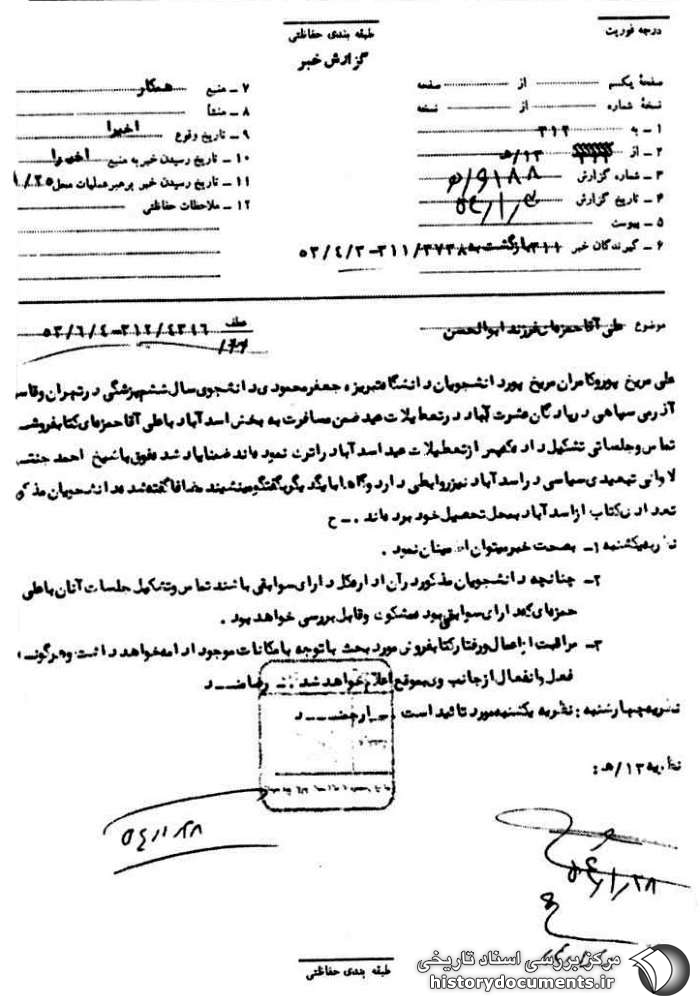 درجه فوریت
طبقه بندی حفاظتی
گزارش خبر
صفحهٔ یکم از صفحه
نسخهٔ شماره از نسخه
۱ ـ به ۳۱۲
۲ ـ از ۱۳/ه‍
۳ ـ شماره گزارش
۴ ـ تاریخ گزارش
۵ ـ پیوست
۶ ـ گیرندگان خبر ۳۱۱ بازگشت به ۳۱۱/۳۷۳۸-۵۳/۴/۳
۷ ـ منبع همکار
۸ ـ منشأ
۹ ـ تاریخ وقوع اخیرا
۱۰ ـ تاریخ رسیدن خبر به منبع اخیرا
۱۱ ـ تاریخ رسیدن خبر برهبر عملیات محل
۱۲ ـ ملاحظات حفاظتی
موضوع علی آقا حمزه‌ای فرزند ابوالحسن
عطف ۳۱۲/۴۳۱۶-۵۳/۶/۴
علی مریخ پور و کامران مریخ پور دانشجویان دانشگاه تبریز و جعفر محمودی دانشجوی سال ششم پزشکی در تهران و قاسم
آذرمی سپاهی در پادگان عشرت آباد در تعطیلات عید ضمن مسافرت به بخش اسدآباد با علی آقا حمزه‌ای کتابفروش
تماس و جلساتی تشکیل داده که پس از تعطیلات عید اسدآباد را ترک نموده‌اند ضمنا یاد شده فوق با شیخ احمد جنتی
لادانی تبعیدی سیاسی در اسدآباد نیز روابطی دارد و گاها با یکدیگر بگفتگو مینشینند مضافا گفته شده دانشجویان مذکور
تعدادی کتاب از اسدآباد بمحل تحصیل خود برده‌اند . ـ ح
نظریه یکشنبه ۱ـ بصحت خبر میتوان اطمینان نمود .
۲ـ چنانچه دانشجویان مذکور در آن اداره کل دارای سوابقی باشند تماس و تشکیل جلسات آنان با علی
حمزه‌ای که دارای سوابقی بوده مشکوک و قابل بررسی خواهد بود .
۳ـ مراقبت از اعمال و رفتار کتابفروش مورد بحث با توجه بامکانات موجود ادامه خواهد داشت و هرگونه
فعل و انفعال از جانب وی بموقع اعلام خواهد شد . ـ رضامند
نظریه چهارشنبه : نظریه یکشنبه مورد تائید است . ارجمند
نظریه ۱۳/ه‍ :
۵۴/۱/۲۸
۵۴/۱/۲۸
طبقه بندی حفاظتی
مرکز بررسی اسناد تاریخی
historydocuments.ir